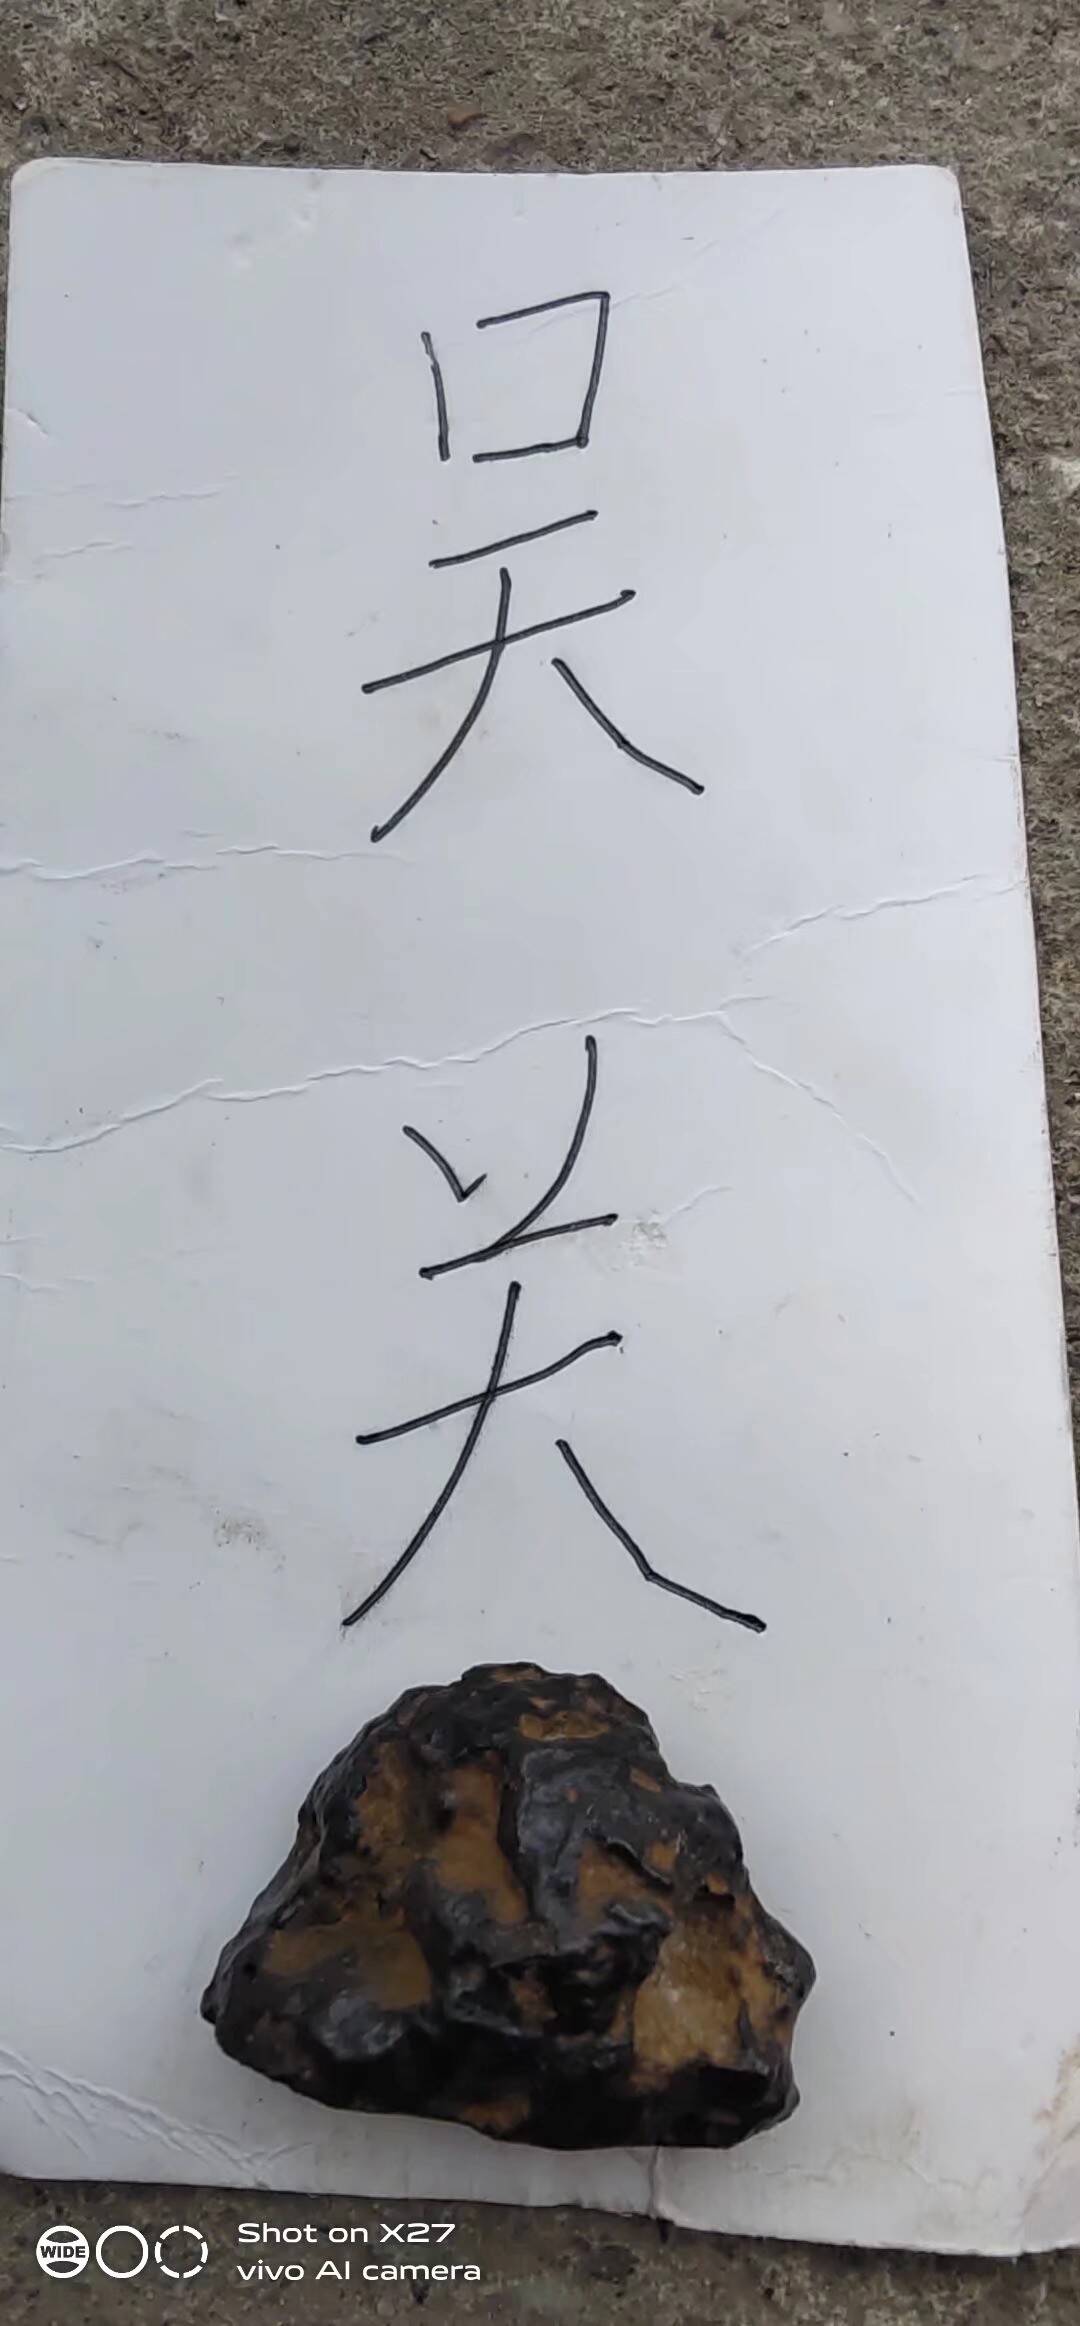 吴
关
WIDE
Shot on X27
vivo AI camera